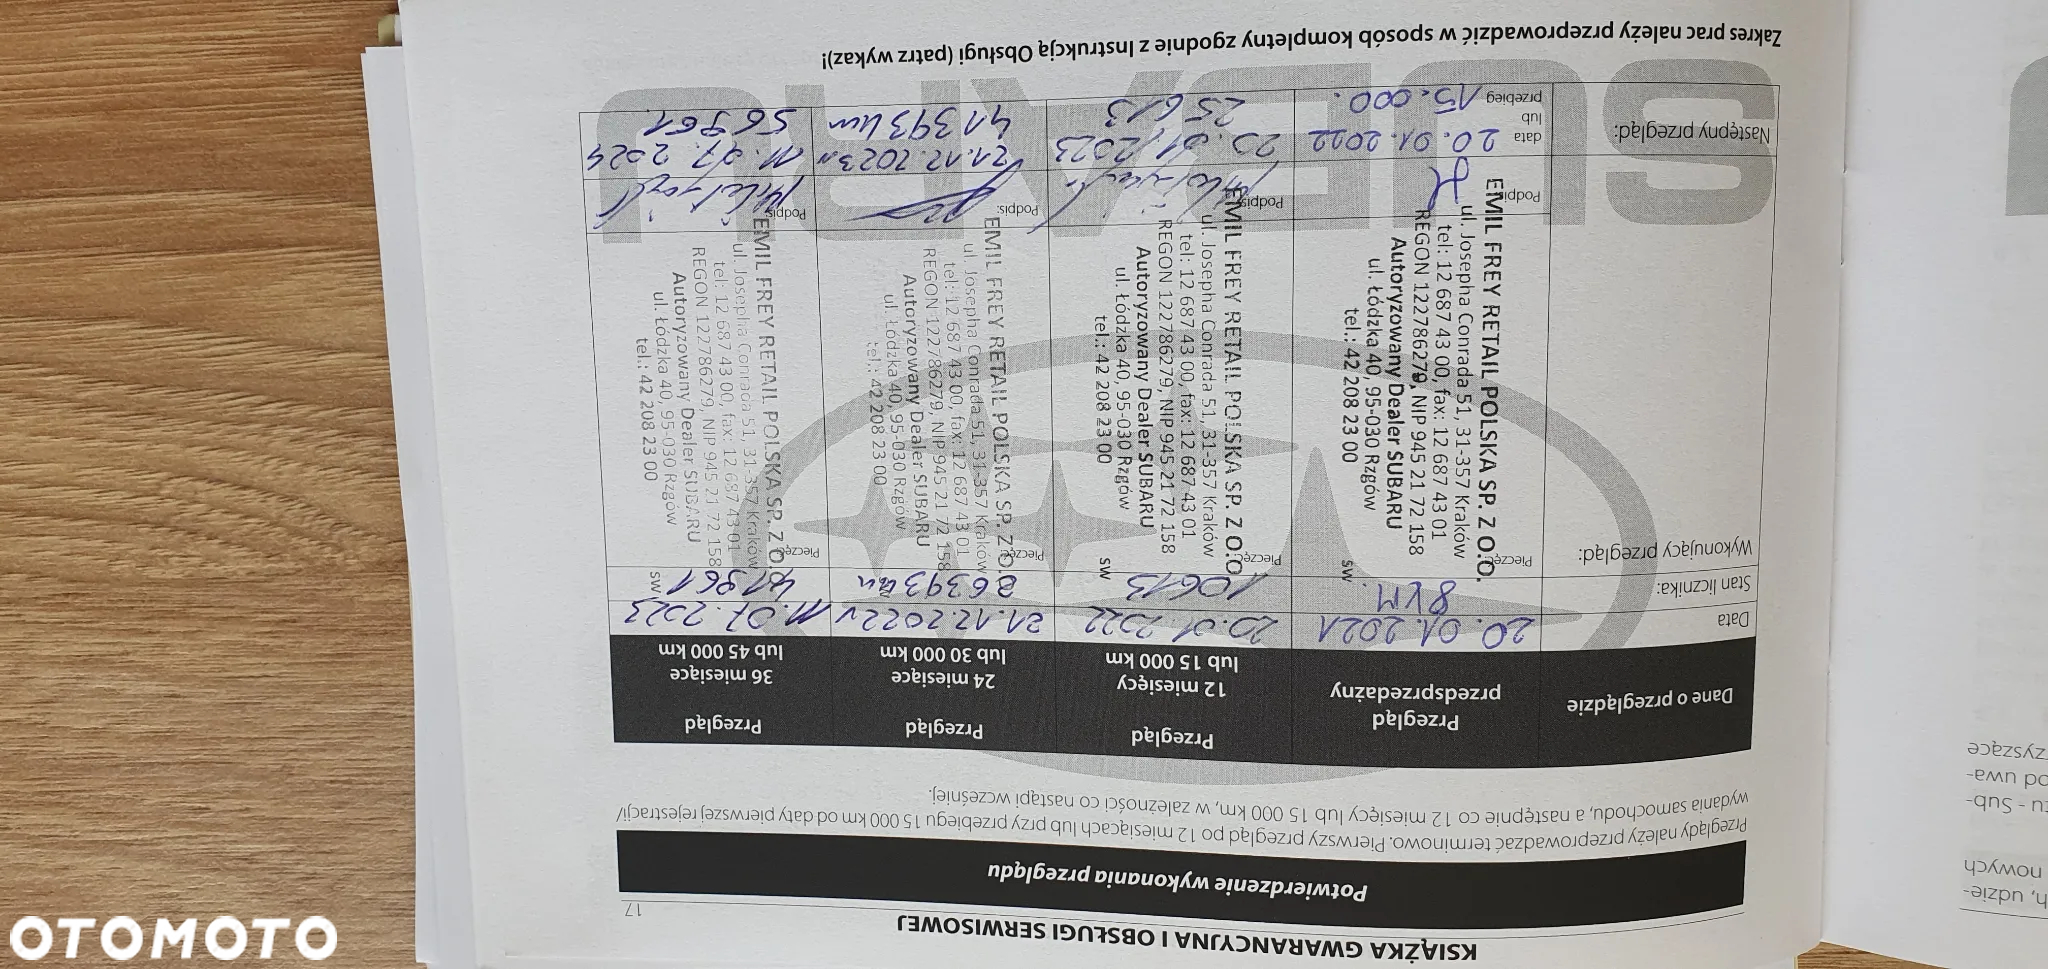 KSIĄŻKA GWARANCYJNA I OBSŁUGI SERWISOWEJ
17
Potwierdzenie wykonania przeglądu
Przeglądy należy przeprowadzać terminowo. Pierwszy przegląd po 12 miesiącach lub przy przebiegu 15 000 km od daty pierwszej rejestracji/
wydania samochodu, a następnie co 12 miesięcy lub 15 000 km, w zależności co nastąpi wcześniej.
Dane o przeglądzie
Przegląd
przedsprzedażny
Przegląd
12 miesięcy
lub 15 000 km
Przegląd
24 miesiące
lub 30 000 km
Przegląd
36 miesiące
lub 45 000 km
Data
20.01.2021
20.01.2022
21.12.2022
11.07.2023
Stan licznika:
8 KM
10613
26393 km
41961
Wykonujący przegląd:
Pieczęć:
EMIL FREY RETAIL POLSKA SP. Z O.O.
ul. Josepha Conrada 51, 31-357 Kraków
tel: 12 687 43 00, fax: 12 687 43 01
REGON 122786279, NIP 945 21 72 158
Autoryzowany Dealer SUBARU
ul. Łódzka 40, 95-030 Rzgów
tel.: 42 208 23 00
sw
Podpis:
Pieczęć:
EMIL FREY RETAIL POLSKA SP. Z O.O.
ul. Josepha Conrada 51, 31-357 Kraków
tel: 12 687 43 00, fax: 12 687 43 01
REGON 122786279, NIP 945 21 72 158
Autoryzowany Dealer SUBARU
ul. Łódzka 40, 95-030 Rzgów
tel.: 42 208 23 00
sw
Podpis:
Pieczęć:
EMIL FREY RETAIL POLSKA SP. Z O.O.
ul. Josepha Conrada 51, 31-357 Kraków
tel: 12 687 43 00, fax: 12 687 43 01
REGON 122786279, NIP 945 21 72 158
Autoryzowany Dealer SUBARU
ul. Łódzka 40, 95-030 Rzgów
tel.: 42 208 23 00
Podpis:
Pieczęć:
EMIL FREY RETAIL POLSKA SP. Z O.O.
ul. Josepha Conrada 51, 31-357 Kraków
tel: 12 687 43 00, fax: 12 687 43 01
REGON 122786279, NIP 945 21 72 158
Autoryzowany Dealer SUBARU
ul. Łódzka 40, 95-030 Rzgów
tel.: 42 208 23 00
sw
Podpis:
Następny przegląd:
data
lub
przebieg
20.01.2022
15.000.
20.01.2023
25613
21.12.2023
41393 km
11.07.2024
56961
Zakres prac należy przeprowadzić w sposób kompletny zgodnie z Instrukcją Obsługi (patrz wykaz)!
SUBARU
h, udzie-
nowych
tu - Sub-
od uwa-
zyszące
OTOMOTO